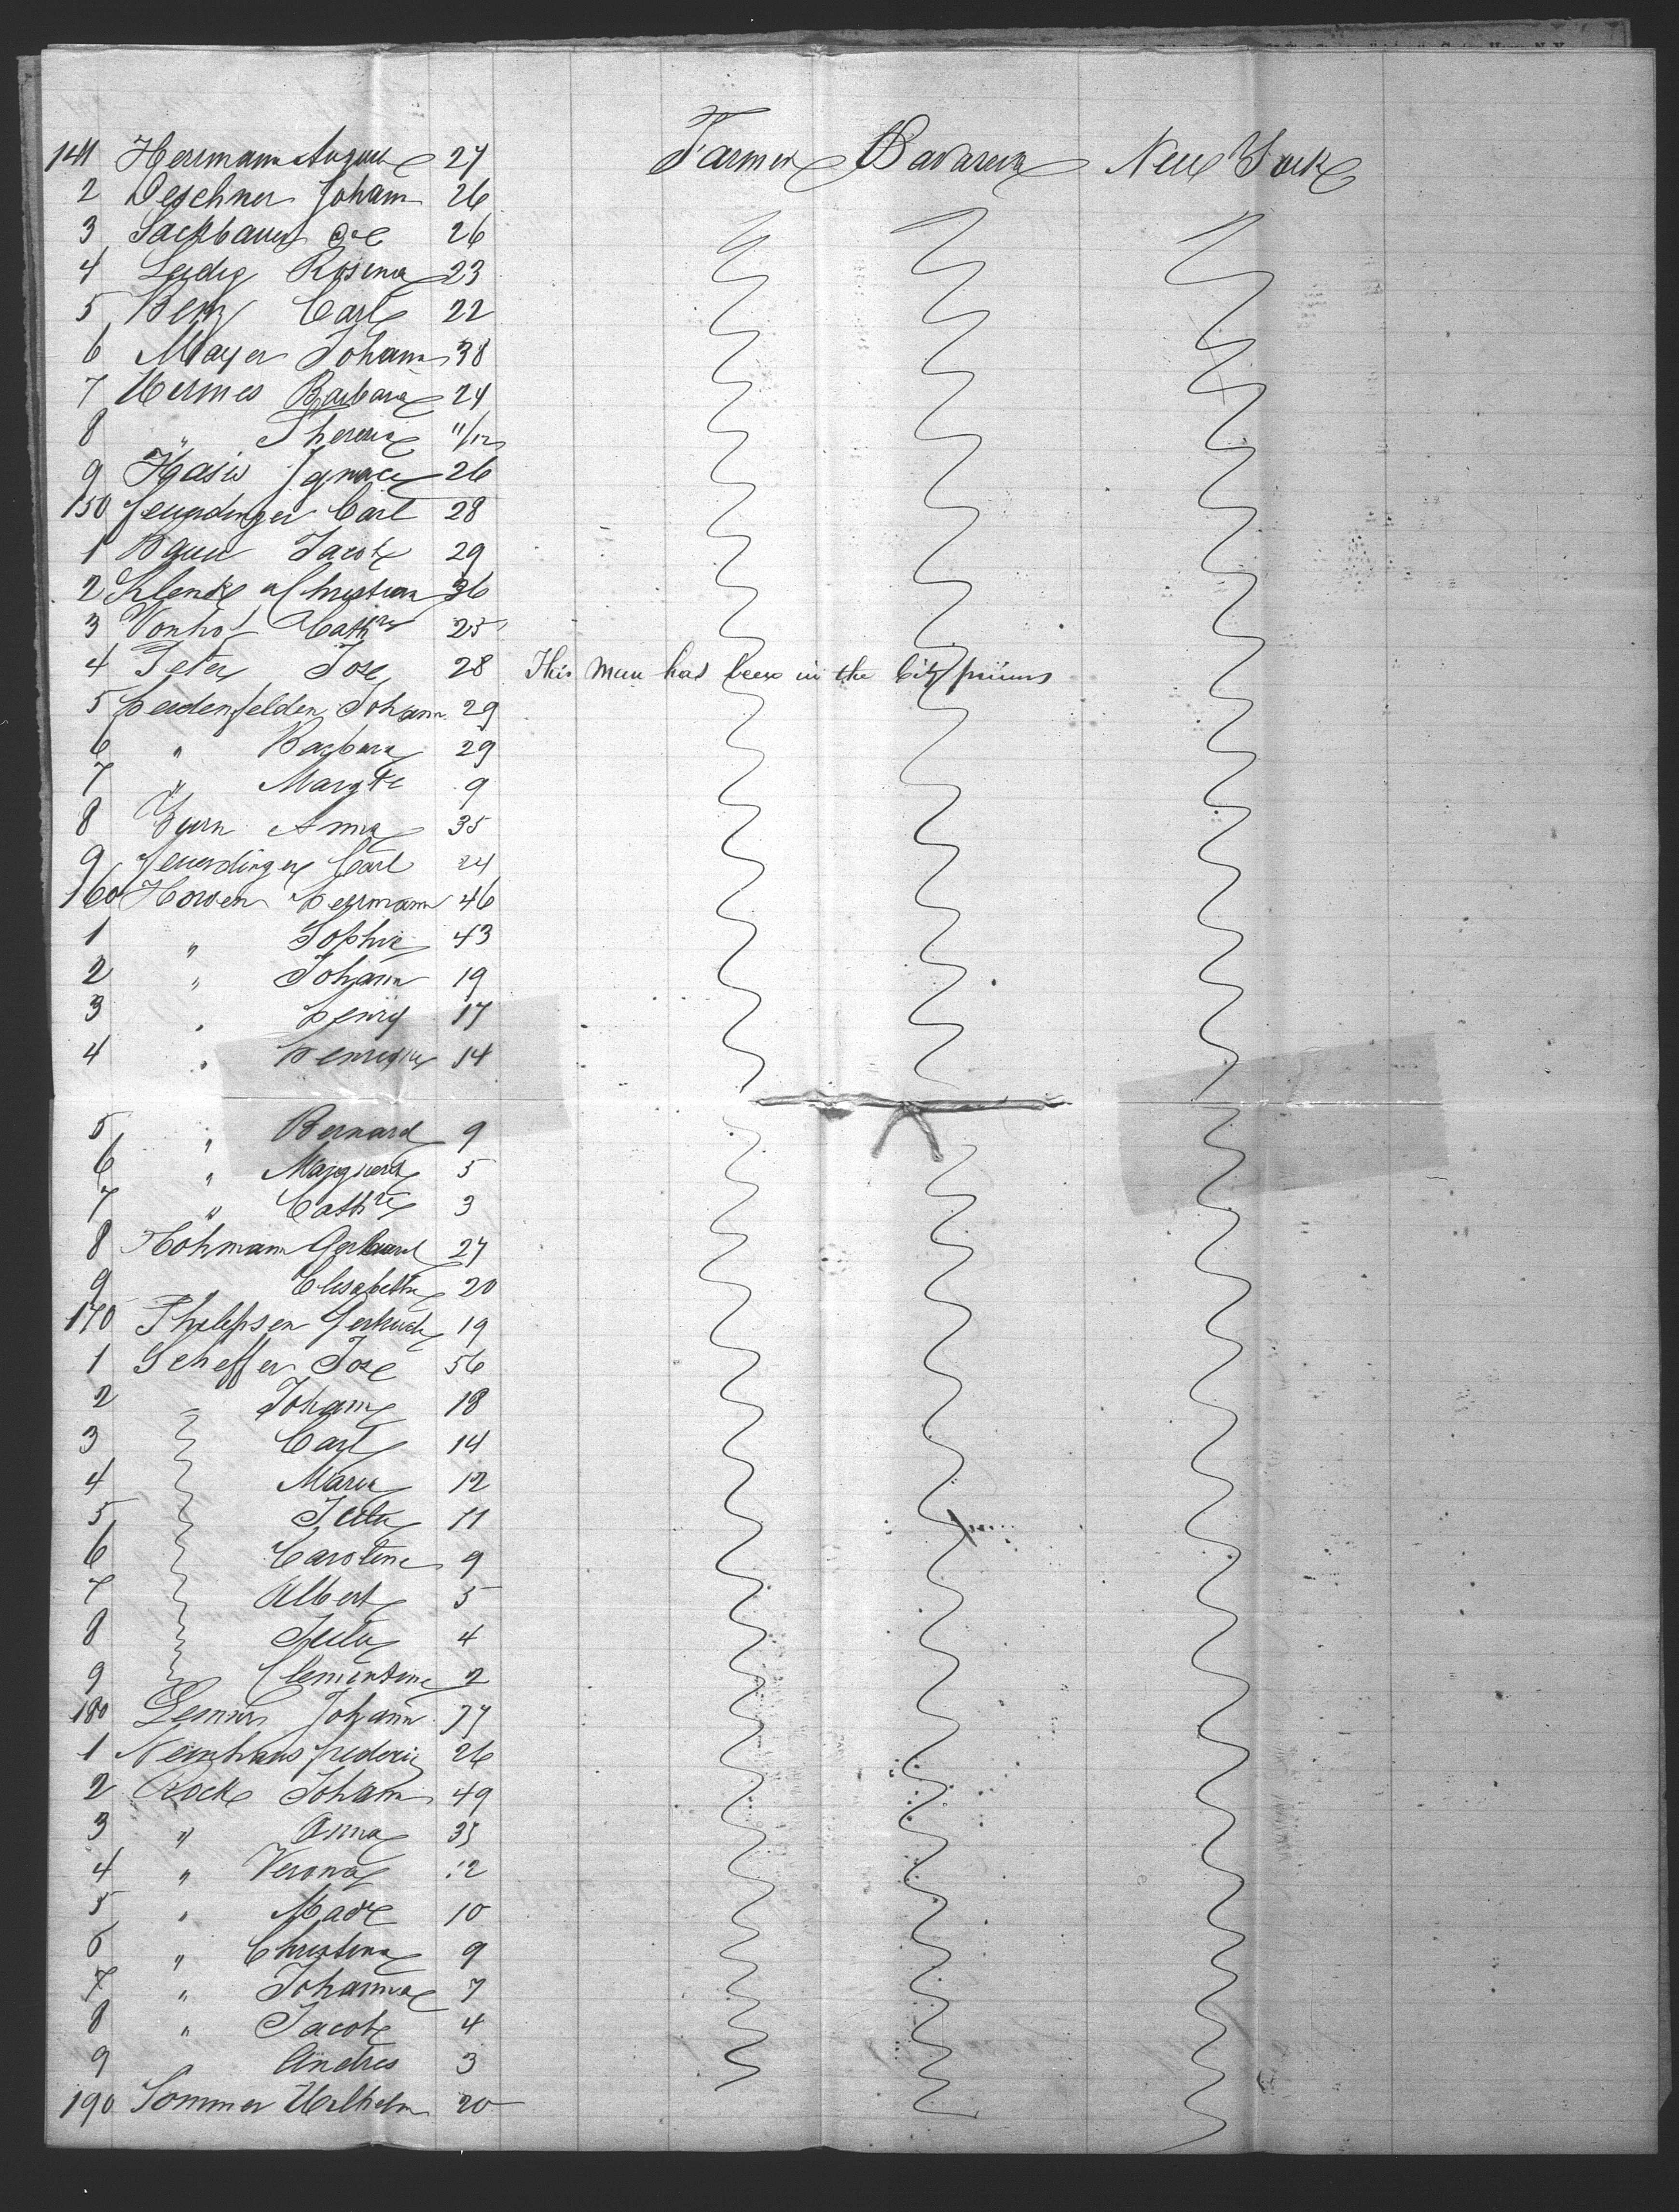 141 Herrmann August 27 Farmer Bavaria New York
2 Oeschner Johann 26
3 Sackbauer 26
4 Leidig Rosina 23
5 Benz Carl 22
6 Mayer Johann 38
7 Hermes Barbara 24
8 " Theresia 11/12
9 Hasis Ignace 26
150 Feuerdinger Carl 28
1 Baur Jacob 29
2 Klenk Christian 36
3 Vonhof Cathne 25
4 Peter Jose 28 This man has been in the City prisons
5 Heidenfelden Johann 29
6 " Barbara 29
7 " Margte 9
8 Zyrn Anna 35
9 Feuerdinger Carl 24
160 Horsen Hermann 46
1 " Sophie 43
2 " Johann 19
3 " Henry 17
4 " 14
5 " Bernard 9
6 " Marguerit 5
7 " Cathne 3
8 Hohmann Gerhard 27
9 Elisabetha 20
170 Philipsen Gertrude 19
1 Scheffer Jose 56
2 " Johann 18
3 Carl 14
4 Maria 12
5 11
6 Caroline 9
7 Albert 5
8 4
9 Clementine 2
180 Johann
1 Neinhaus Frederic 26
2 Rock Johann 49
3 " Anna 35
4 " Verona 12
5 " 10
6 " Christina 9
7 " Johanna 7
8 " Jacob 4
9 Andres 3
190 Sommer Wilhelm 20